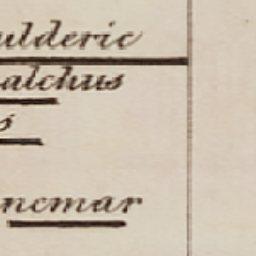 ulderic
alchus
s
ncmar